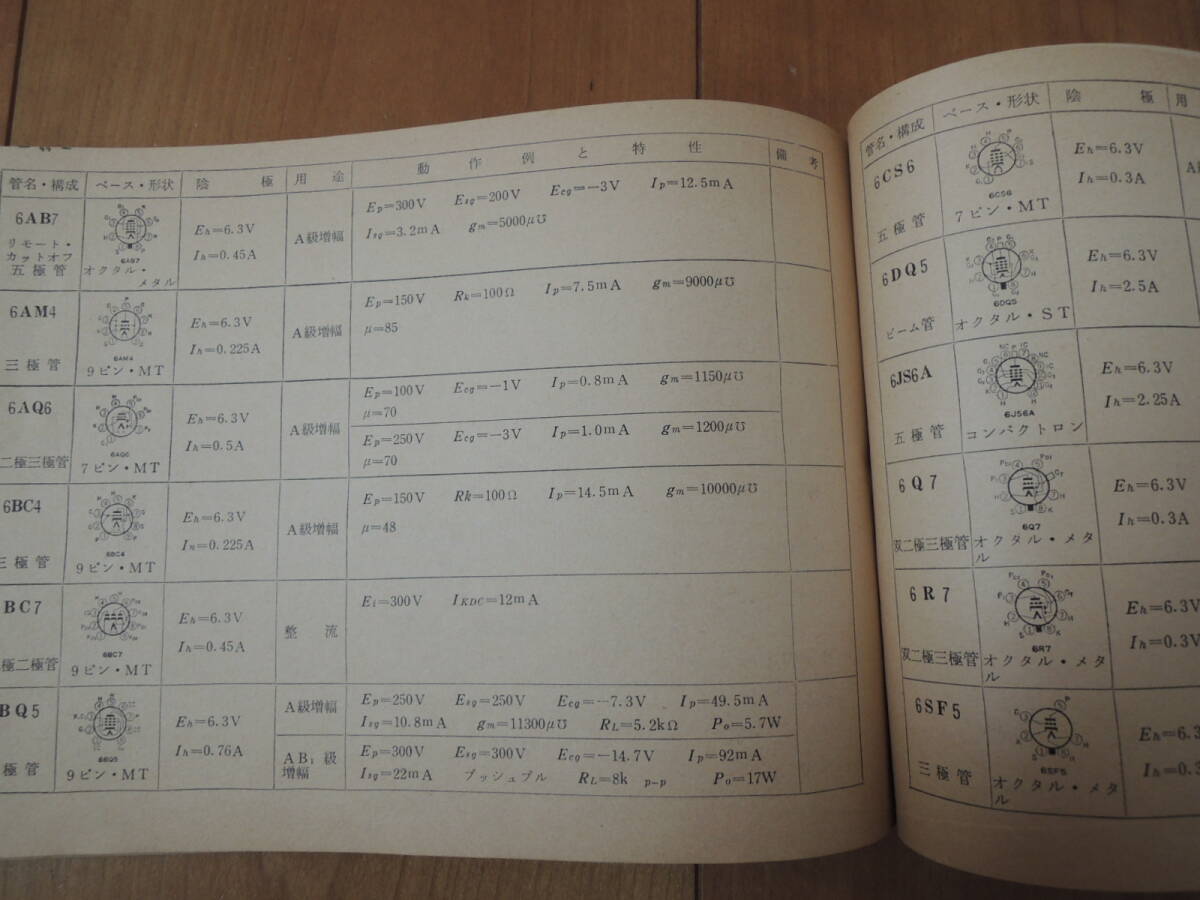 動作例と特性 備考
管名・構成 ベース・形状 陰極 用途
6AB7
リモート・
カットオフ
五極管
6AB7
オクタル・
メタル
Eh=6.3V
Ih=0.45A
A級増幅
Ep=300V Esg=200V Ecg=−3V Ip=12.5mA
Isg=3.2mA gm=5000μ℧
6AM4
三極管
6AM4
9ピン・MT
Eh=6.3V
Ih=0.225A
A級増幅
Ep=150V Rk=100Ω Ip=7.5mA gm=9000μ℧
μ=85
6AQ6
二極三極管
6AQ6
7ピン・MT
Eh=6.3V
Ih=0.5A
A級増幅
Ep=100V Ecg=−1V Ip=0.8mA gm=1150μ℧
μ=70
Ep=250V Ecg=−3V Ip=1.0mA gm=1200μ℧
μ=70
6BC4
三極管
6BC4
9ピン・MT
Eh=6.3V
Ih=0.225A
A級増幅
Ep=150V Rk=100Ω Ip=14.5mA gm=10000μ℧
μ=48
BC7
極二極管
6BC7
9ピン・MT
Eh=6.3V
Ih=0.45A
整流
Ei=300V IKDC=12mA
BQ5
極管
6BQ5
9ピン・MT
Eh=6.3V
Ih=0.76A
A級増幅
Ep=250V Esg=250V Ecg=−7.3V Ip=49.5mA
Isg=10.8mA gm=11300μ℧ RL=5.2kΩ Po=5.7W
AB₁級
増幅
Ep=300V Esg=300V Ecg=−14.7V Ip=92mA
Isg=22mA プッシュプル RL=8k p-p Po=17W
管名・構成 ベース・形状 陰極 用
6CS6
五極管
6CS6
7ピン・MT
Eh=6.3V
Ih=0.3A
6DQ5
ビーム管
6DQ5
オクタル・ST
Eh=6.3V
Ih=2.5A
6JS6A
五極管
6JS6A
コンパクトロン
Eh=6.3V
Ih=2.25A
6Q7
双二極三極管
6Q7
オクタル・メタ
ル
Eh=6.3V
Ih=0.3A
6R7
双二極三極管
6R7
オクタル・メタ
ル
Eh=6.3V
Ih=0.3V
6SF5
三極管
6SF5
オクタル・メタ
ル
Eh=6.3
Ih=0.3